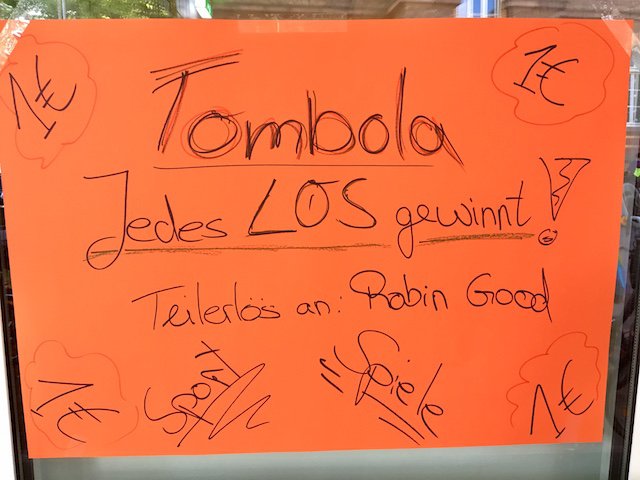 1€
1€
Tombola
Jedes LOS gewinnt!
Teilerlös an: Robin Good
1€
Sport
Spiele
1€